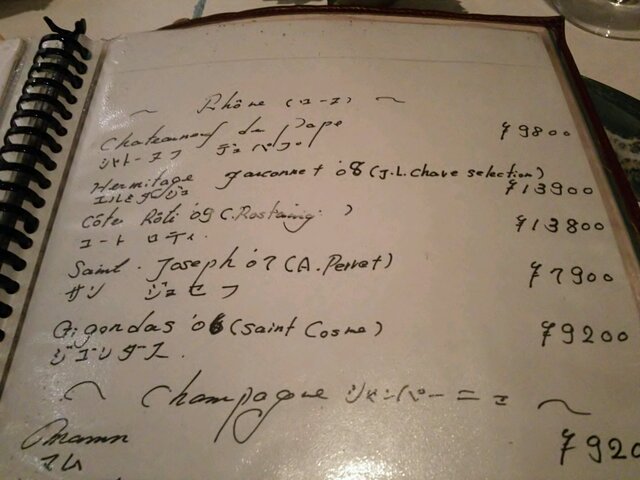 ~ Rhône (ローヌ) ~
Chateauneuf du Pape ¥9800
シャトーヌフ デュ パプ
Hermitage farconnet '08 (J.L. Chave selection) ¥13900
エルミタージュ
Côte Rôti '09 (C. Rostaing ) ¥13800
コート ロティ.
Saint. Joseph '07 (A. Perret) ¥7900
サン ジョセフ
Gigondas '06 (Saint Cosme) ¥9200
ジゴンダス.
~ Champagne シャンパーニュ ~
Mumm ¥920
マム